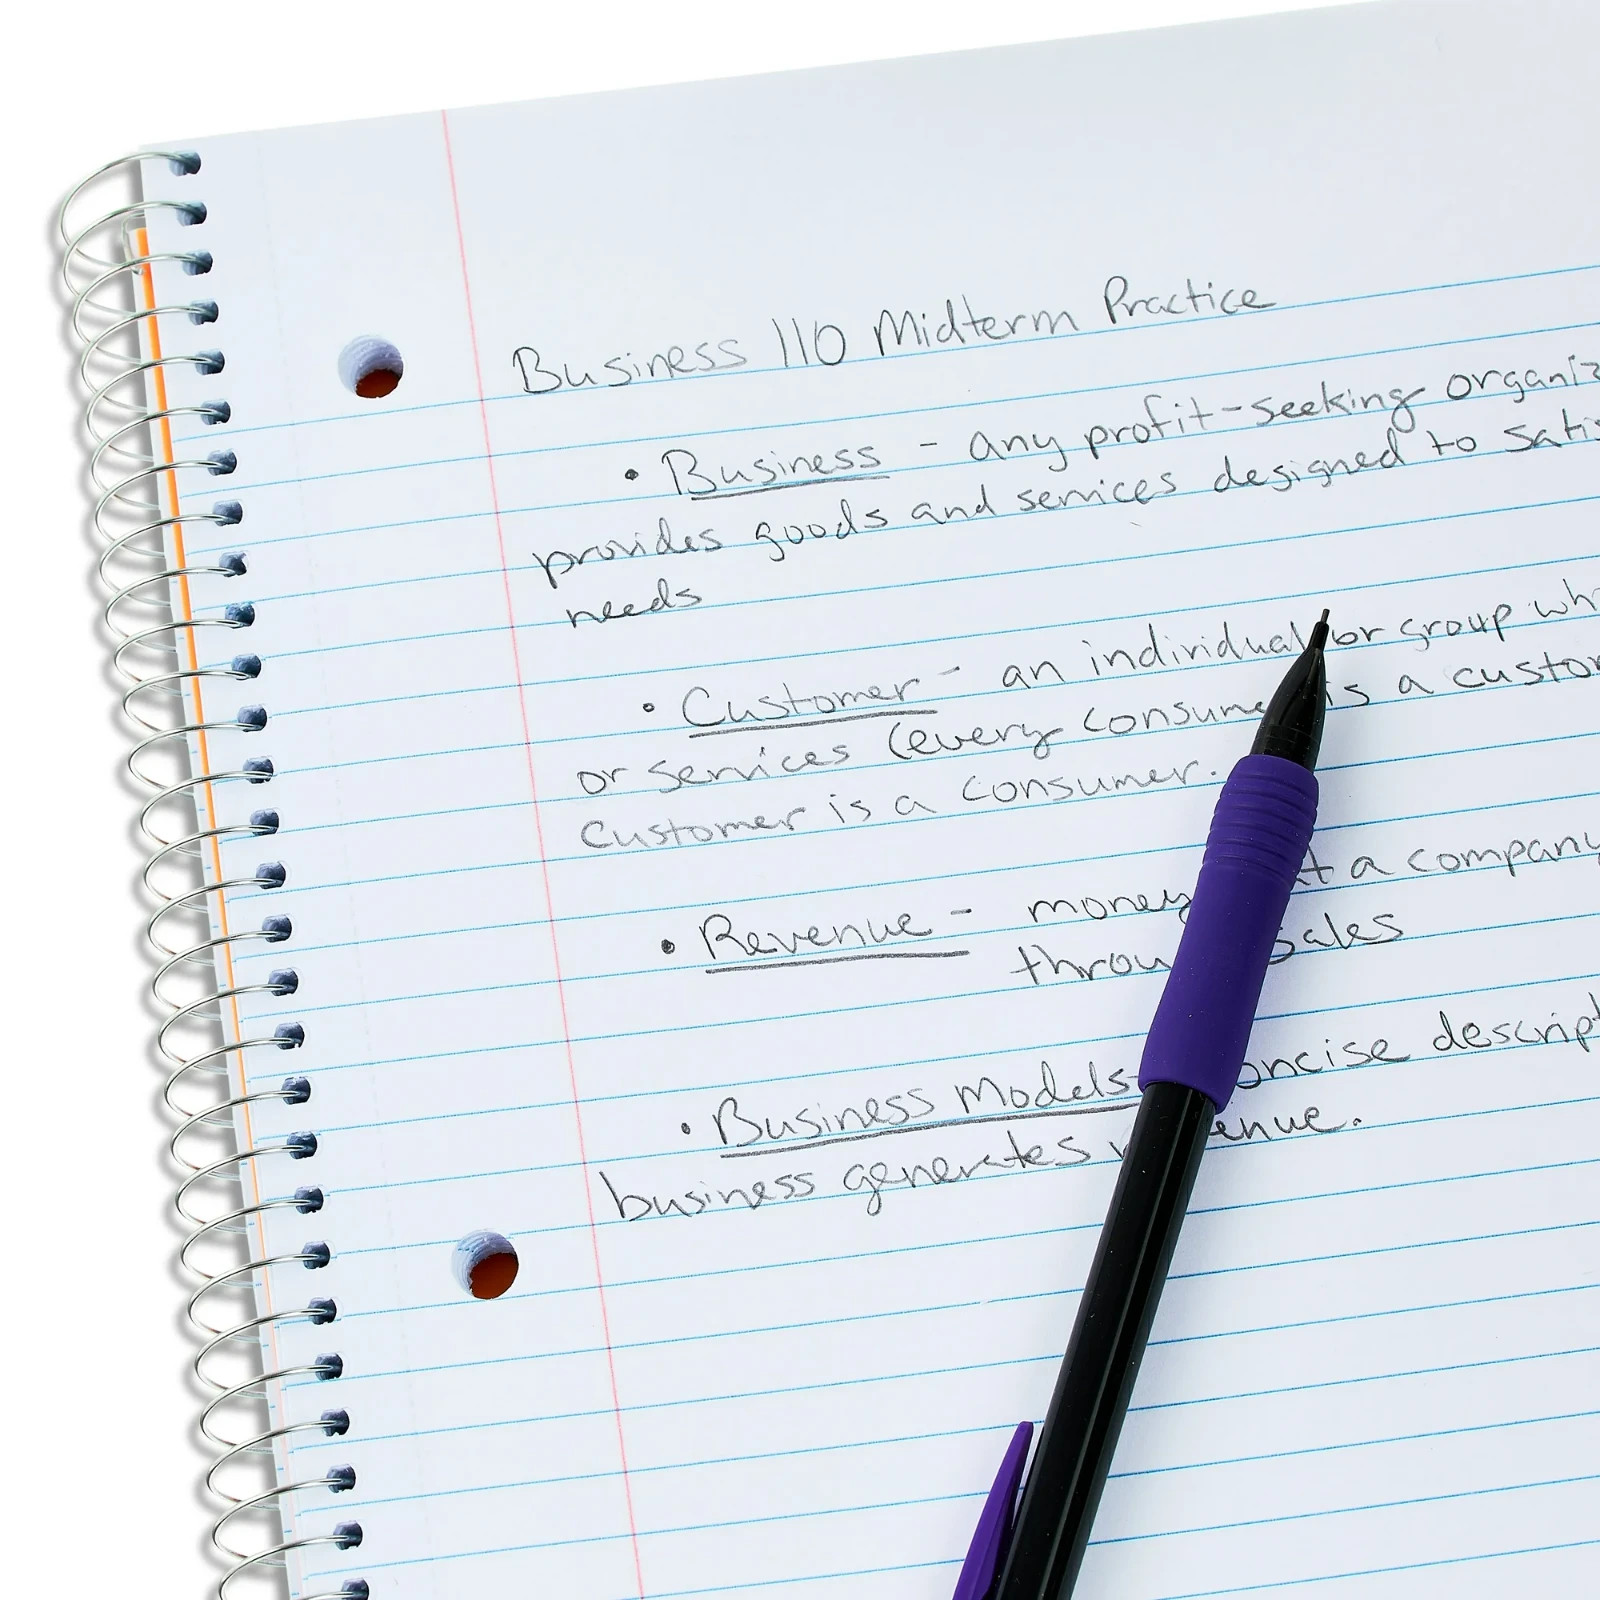 Business 110 Midterm Practice
• Business - any profit-seeking organiz
provides goods and services designed to satis
needs
• Customer - an individual or group wh
or services (every consume is a custom
Customer is a consumer.
• Revenue - money t a company
throu sales
• Business Models- oncise descript
business generates r enue.